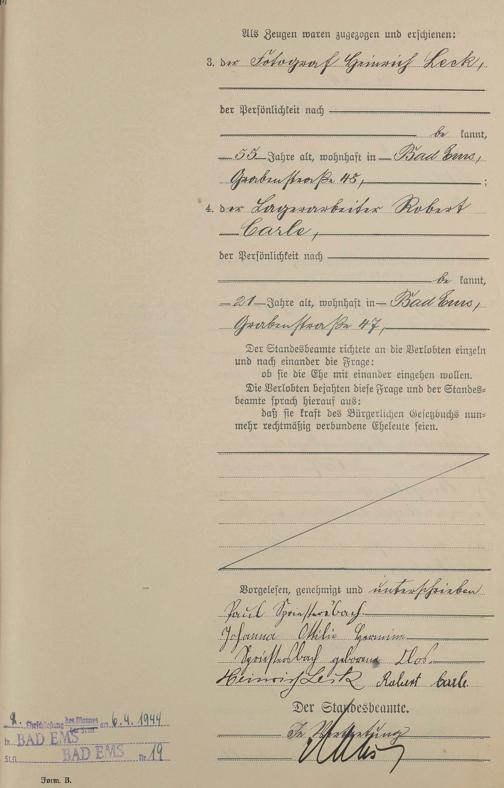 Als Zeugen waren zugezogen und erschienen:
3. der Fotograf Heinrich Leck,
der Persönlichkeit nach
be kannt,
55 Jahre alt, wohnhaft in Bad Ems,
Grabenstraße 45, ;
4. der Lagerarbeiter Robert
Carle,
der Persönlichkeit nach
be kannt,
21 Jahre alt, wohnhaft in Bad Ems,
Grabenstraße 47,
Der Standesbeamte richtete an die Verlobten einzeln
und nach einander die Frage:
ob sie die Ehe mit einander eingehen wollen.
Die Verlobten bejahten diese Frage und der Standes-
beamte sprach hierauf aus:
daß sie kraft des Bürgerlichen Gesetzbuchs nun-
mehr rechtmäßig verbundene Eheleute seien.
Vorgelesen, genehmigt und unterschrieben
Paul Spriestersbach
Johanna Ottilie Hermine
Spriestersbach geborene
Heinrich Leck Robert Carle
Der Standesbeamte.
In Vertretung
2. Eheschließung des Mannes am 6.4.1944
in BAD EMS
St.A. BAD EMS Nr. 19
Form. B.